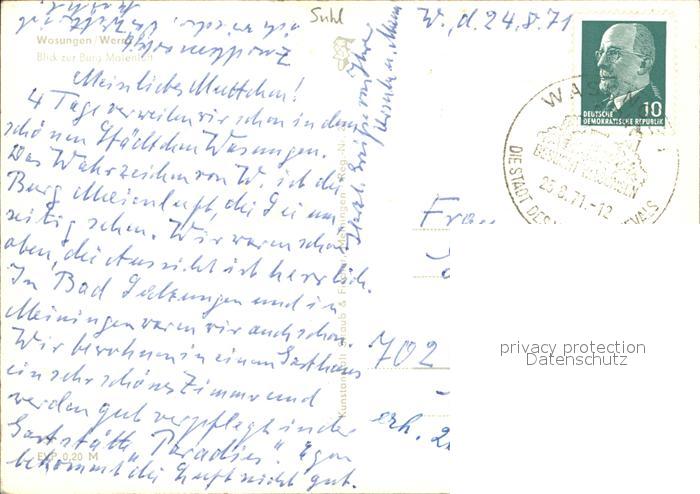 Suhl
W., d. 24.8.71
Wasungen/Werra
Blick zur Burg Maienluft
Mein liebes Muttchen!
4 Tage verweilen wir schon in dem
schönen Städtchen Wasungen.
Das Wahrzeichen von W. ist die
Burg Meienluft, die Sie um
seitig sehen. Wir waren schon
oben, die Aussicht ist herrlich.
In Bad Salzungen und in
Meiningen waren wir auch schon.
Wir bewohnen in einem Gasthaus
ein sehr schönes Zimmer und
werden gut verpflegt in der
Gaststätte "Paradies". Egon
bekommt die Luft nicht gut.
EVP 0,20 M
Herzl. Grüße von Ihrer
Kunstanstalt Straub & Fischer, Meiningen
DEUTSCHE
DEMOKRATISCHE REPUBLIK
10
BESUCHT WASUNGEN
25.8.71.-12
DIE STADT DES
Frau
702
erh.
privacy protection
Datenschutz